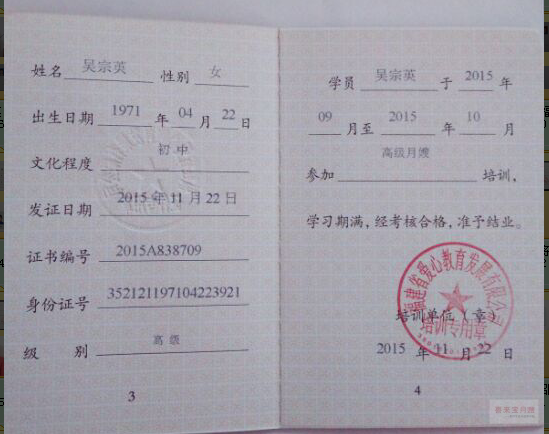 姓名 吴宗英 性别 女
出生日期 1971 年 04 月 22 日
文化程度 初中
发证日期 2015年11月22日
证书编号 2015A838709
身份证号 352121197104223921
级 别 高级
3
学员 吴宗英 于 2015 年
09 月至 2015 年 10 月
高级月嫂
参加 培训，
学习期满，经考核合格，准予结业。
福建省爱心教育发展有限公司
培训单位（章）
培训专用章
2015 年 11 月 22 日
4